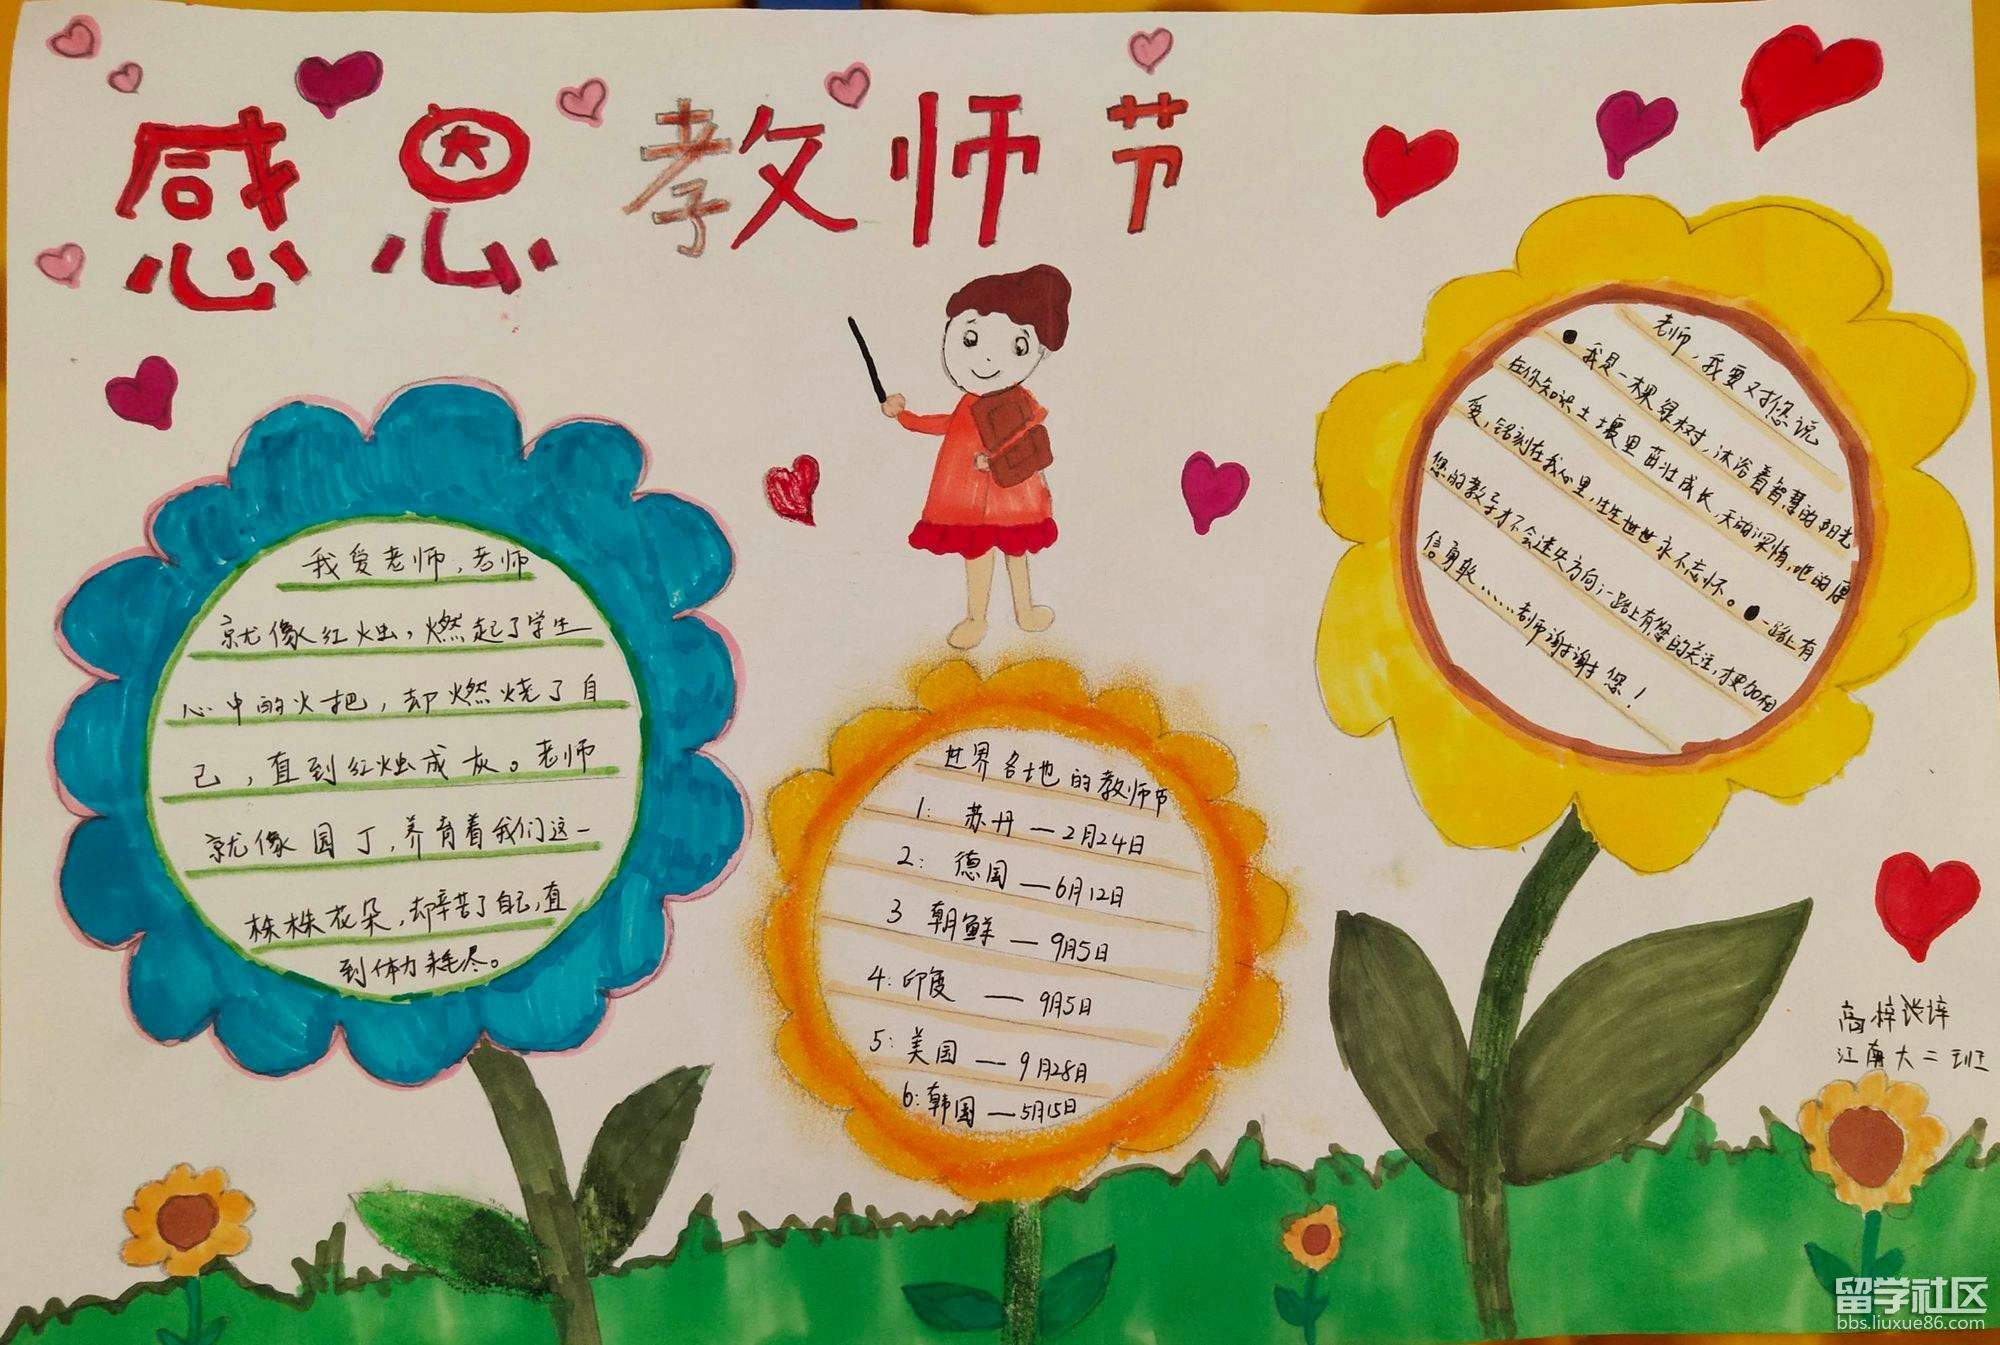 感恩教师节
我爱老师,老师
就像红烛,燃起了学生
心中的火把,却燃烧了自
己,直到红烛成灰。老师
就像园丁,养育着我们这一
株株花朵,却辛苦了自己,直
到体力耗尽。
世界各地的教师节
1: 苏丹 — 2月24日
2: 德国 — 6月12日
3 朝鲜 — 9月5日
4: 印度 — 9月5日
5: 美国 — 9月28日
6: 韩国 — 5月15日
老师,我要对您说
我是一棵绿树,沐浴着智慧的阳光
在你知识土壤里茁壮成长,天的深情,地的厚
爱,铭刻在我心里,生生世世永不忘怀。一路上有
您的教导才不会迷失方向;一路上有您的关注,才更加相
信勇敢……老师谢谢您!
高梓
江南大二班
留学社区
bbs.liuxue86.com